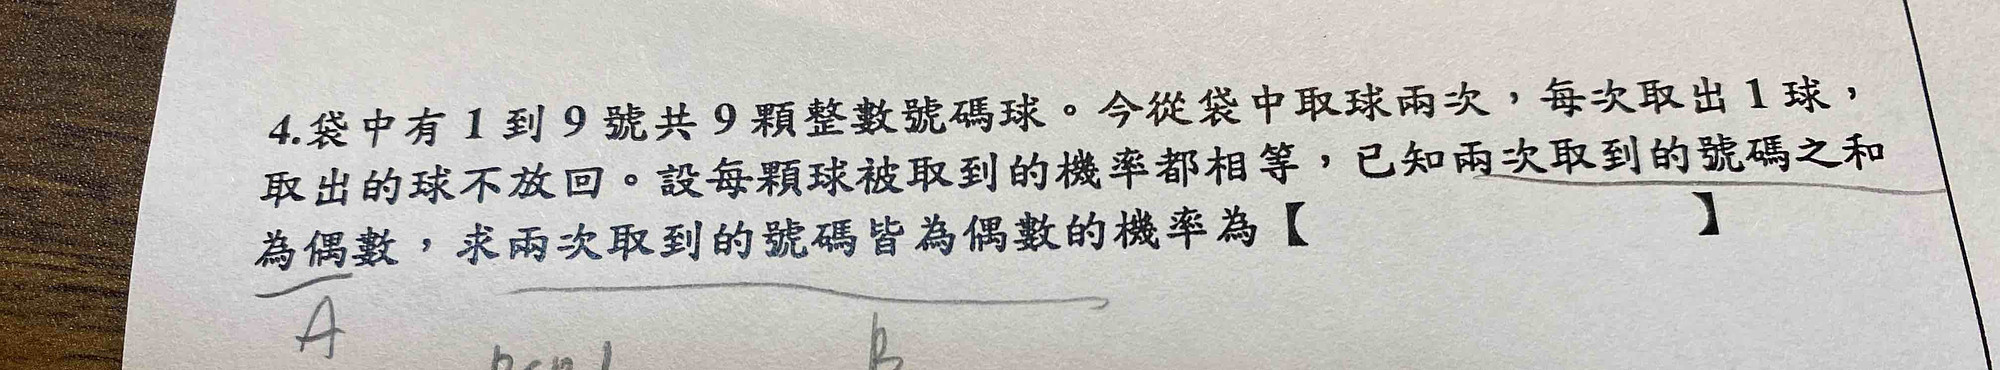 4.袋中有1到9號共9顆整數號碼球。今從袋中取球兩次，每次取出1球，
取出的球不放回。設每顆球被取到的機率都相等，已知兩次取到的號碼之和
為偶數，求兩次取到的號碼皆為偶數的機率為【 】
A
B